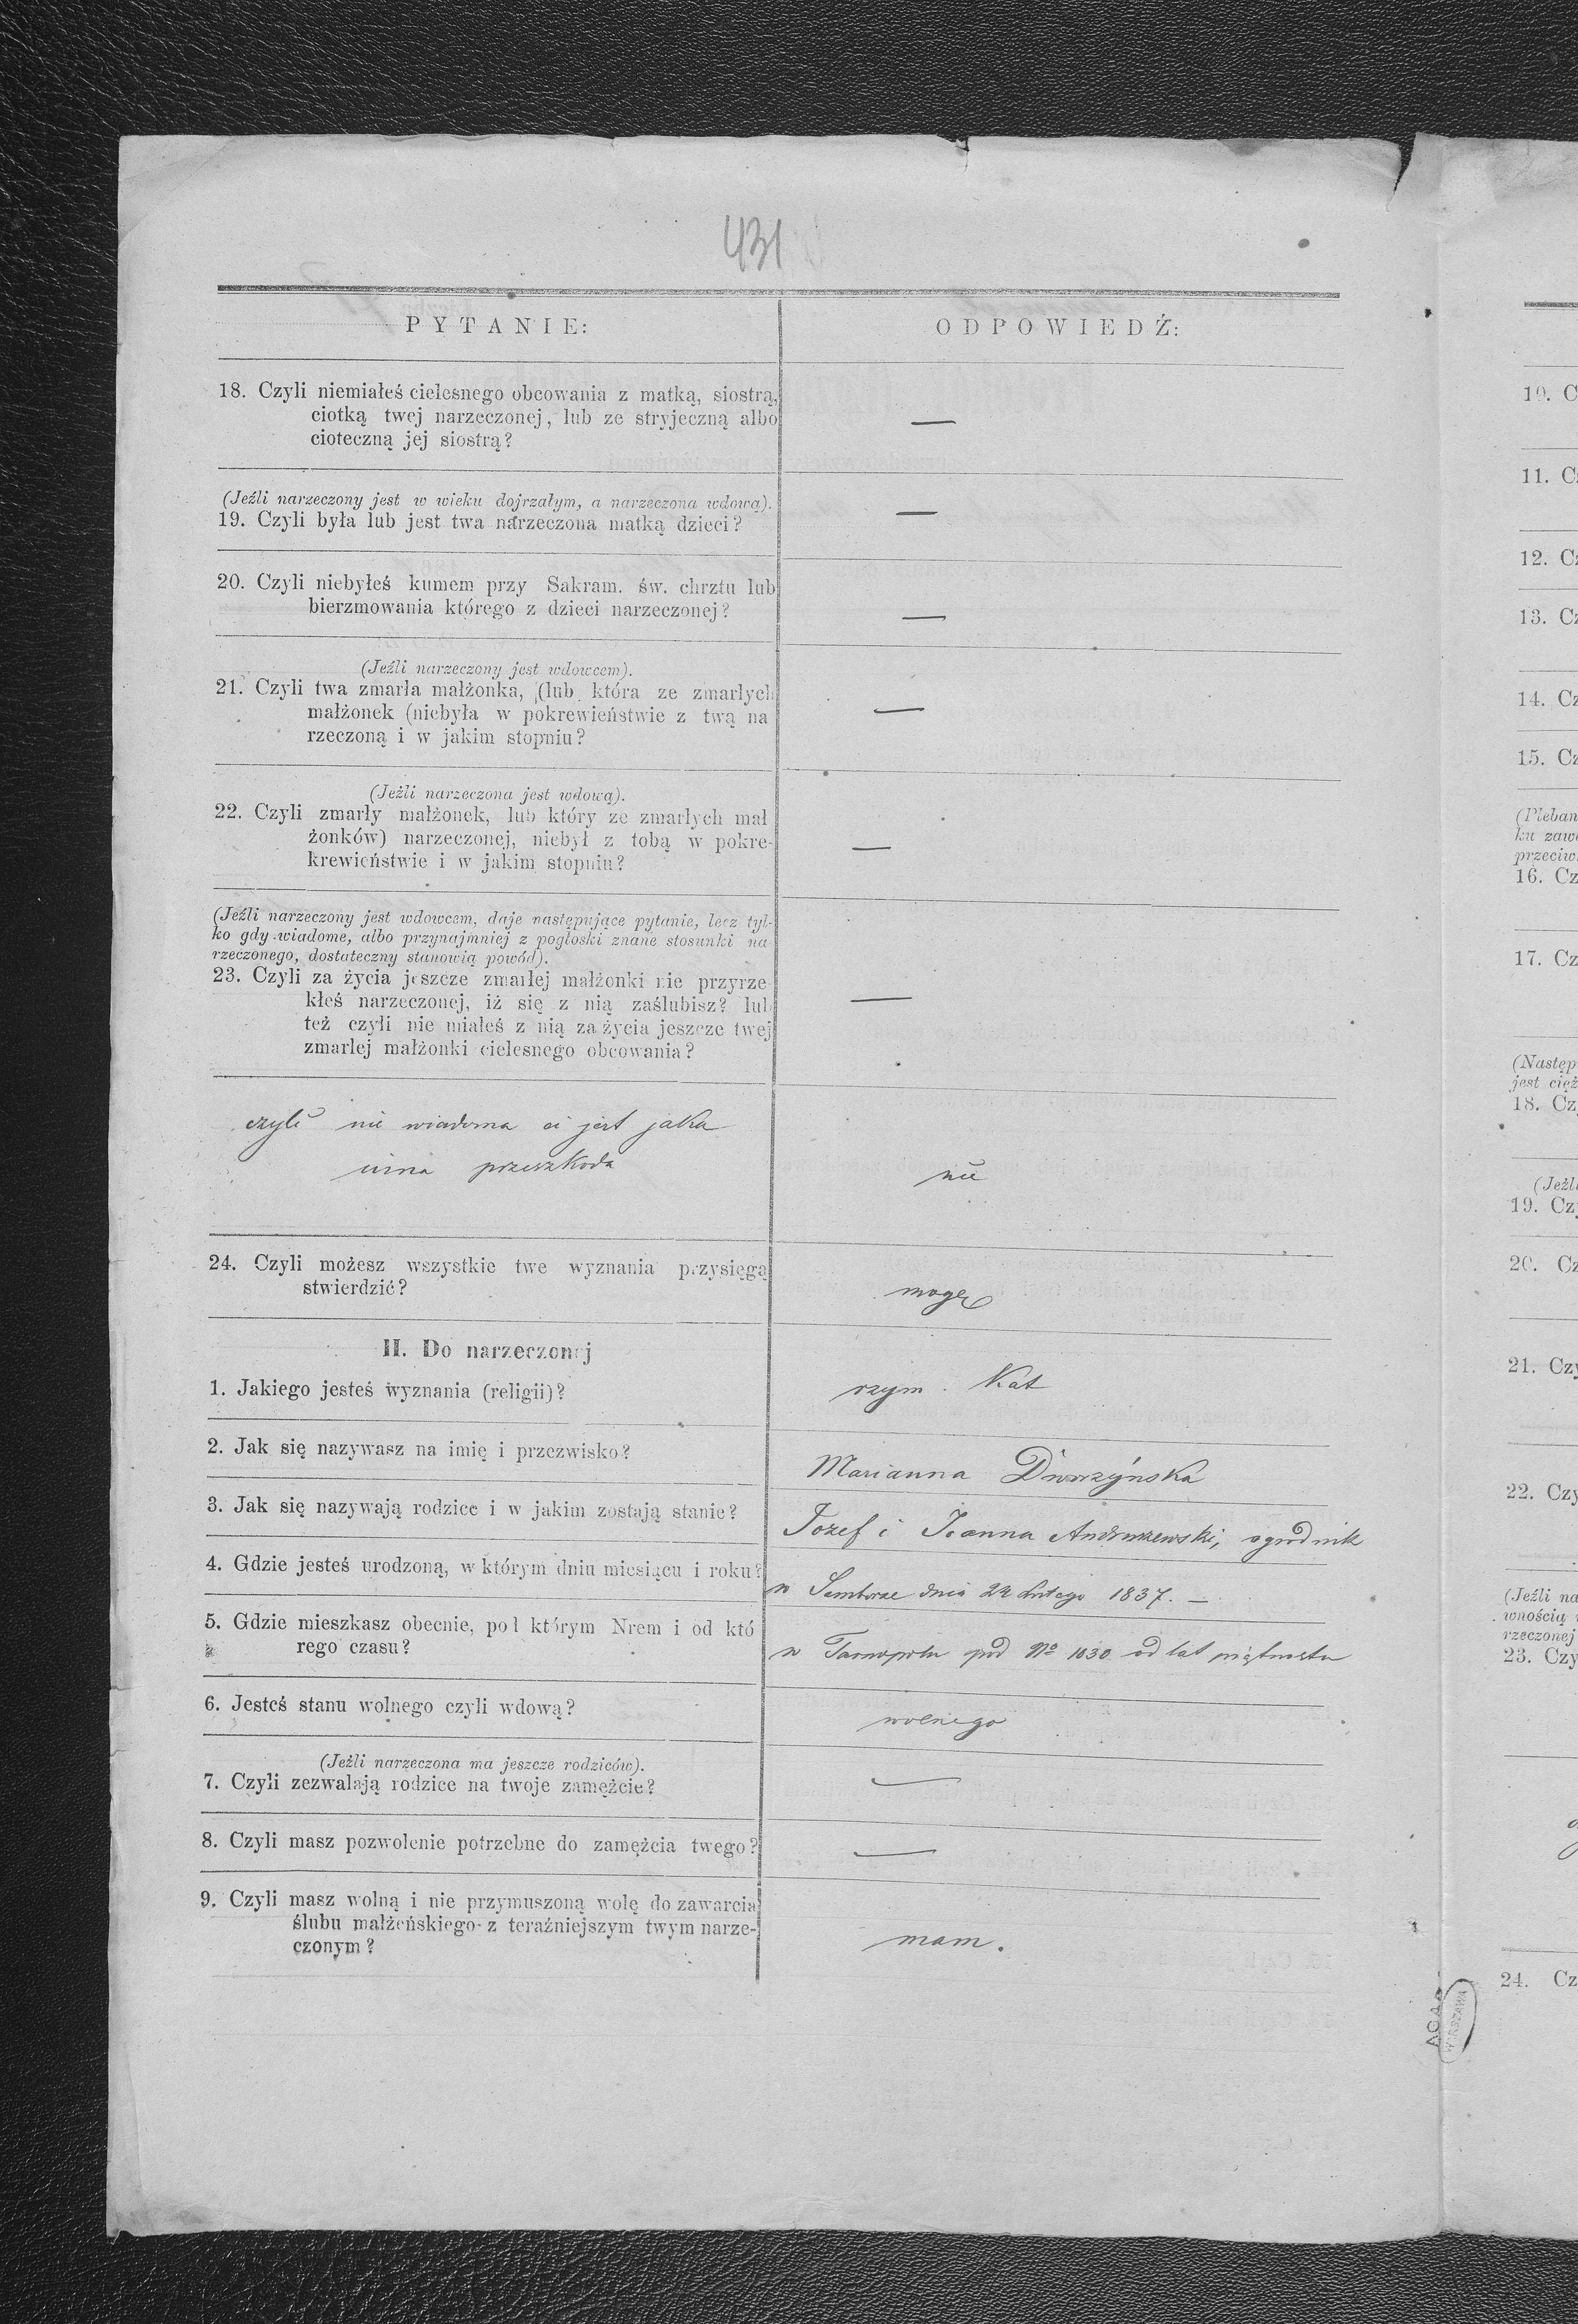 431
PYTANIE:
ODPOWIEDŹ:
18. Czyli niemiałeś cielesnego obcowania z matką, siostrą,
ciotką twej narzeczonej, lub ze stryjeczną albo
cioteczną jej siostrą?
—
(Jeźli narzeczony jest w wieku dojrzałym, a narzeczona wdową).
19. Czyli była lub jest twa narzeczona matką dzieci?
—
20. Czyli niebyłeś kumem przy Sakram. św. chrztu lub
bierzmowania którego z dzieci narzeczonej?
—
(Jeźli narzeczony jest wdowcem).
21. Czyli twa zmarła małżonka, (lub która ze zmarłych
małżonek (niebyła w pokrewieństwie z twą na
rzeczoną i w jakim stopniu?
—
(Jeźli narzeczona jest wdową).
22. Czyli zmarły małżonek, lub który ze zmarłych mał
żonków) narzeczonej, niebył z tobą w pokre-
krewieństwie i w jakim stopniu?
—
(Jeźli narzeczony jest wdowcem, daje następujące pytanie, lecz tyl-
ko gdy wiadome, albo przynajmniej z pogłoski znane stosunki na
rzeczonego, dostateczny stanowią powód).
23. Czyli za życia jeszcze zmarłej małżonki nie przyrze
kłeś narzeczonej, iż się z nią zaślubisz? lub
też czyli nie miałeś z nią za życia jeszcze twej
zmarłej małżonki cielesnego obcowania?
—
czyli nie wiadoma ci jest jaka
inna przeszkoda
nie
24. Czyli możesz wszystkie twe wyznania przysięgą
stwierdzić?
mogę
II. Do narzeczonej
1. Jakiego jesteś wyznania (religii)?
rzym. Kat
2. Jak się nazywasz na imię i przezwisko?
Marianna
3. Jak się nazywają rodzice i w jakim zostają stanie?
Józef i Joanna ogrodnik
4. Gdzie jesteś urodzoną, w którym dniu miesiącu i roku?
w Samborze dnia Lutego 1837. —
5. Gdzie mieszkasz obecnie, pod którym Nrem i od któ
rego czasu?
w Tarnopolu pod No 1030 od lat piętnastu
6. Jesteś stanu wolnego czyli wdową?
wolnego
(Jeżli narzeczona ma jeszcze rodziców).
7. Czyli zezwalają rodzice na twoje zamężcie?
—
8. Czyli masz pozwolenie potrzebne do zamężcia twego?
—
9. Czyli masz wolną i nie przymuszoną wolę do zawarcia
ślubu małżeńskiego z teraźniejszym twym narze-
czonym?
mam.
10. C
11. C
12. Cz
13. Cz
14. Cz
15. Cz
(Pleban
ku zaw
przeciw
16. Cz
17. Cz
(Następ
jest cięż
18. Cz
(Jeżl
19. Cz
20. Cz
21. Czy
22. Czy
(Jeźli na
wnością
rzeczonej
23. Czy
24. Cz
AGAD
WARSZAWA